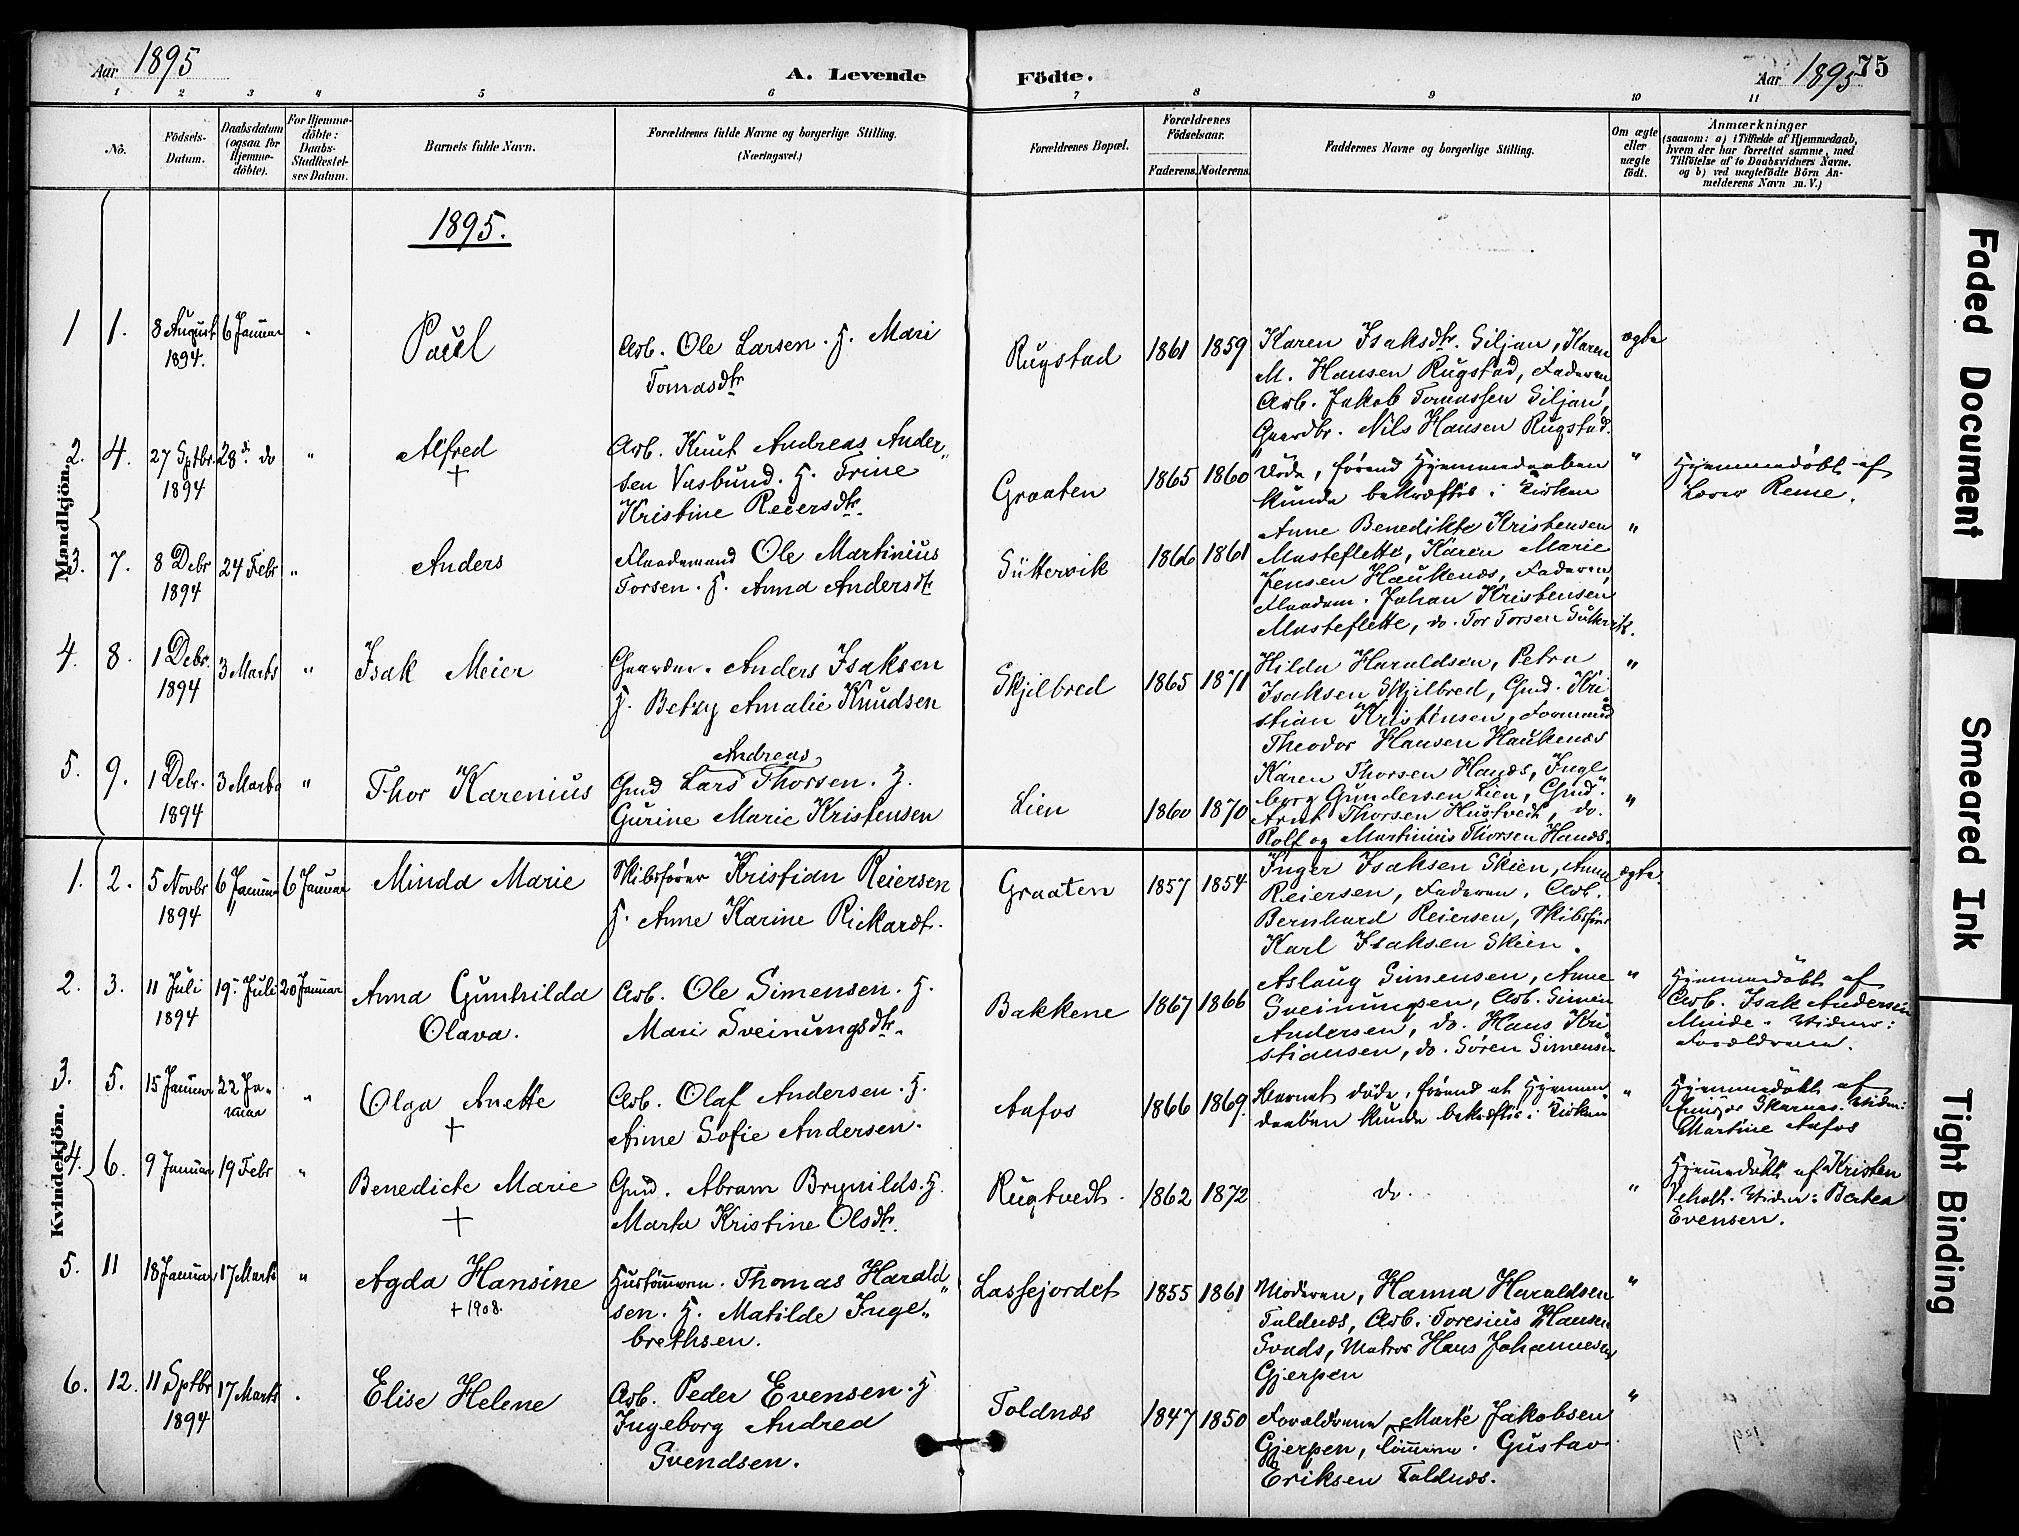 Aar 1895
A. Levende Födte.
Aar 1895 75
1 2 3 4 5 6 7 8 9 10 11
No.
Födsels-Datum.
Daabsdatum (ogsaa for Hjemme-döbte).
For Hjemme-döbte: Daabs-Stadfæstel-ses Datum.
Barnets fulde Navn.
Forældrenes fulde Navne og borgerlige Stilling.
(Næringsvei.)
Forældrenes Bopæl.
Forældrenes Födselsaar.
Faderens. Moderens.
Faddernes Navne og borgerlige Stilling.
Om ægte eller uægte födt.
Anmærkninger
(saasom: a) i Tilfælde af Hjemmedaab,
hvem der har forrettet samme, med
Tilföielse af to Daabsvidners Navne.
og b) ved uægtefödte Börn An-
melderens Navn m. V.)
1895.
Mandkjön.
1 1. 8 August 1894. 6 Januar "
Paul
Arb. Ole Larsen. H. Mari
Tomasdtr
Rugstad 1861 1859
Karen Isaksdtr. Siljan, Karen
M. Hansen Rugstad, Faderen,
Arb. Jakob Tomassen Siljan,
Gaardbr. Nils Hansen Rugstad.
ægte
2. 4. 27 Sptbr. 1894 28 d. do "
Alfred
+
Arb. Knut Andreas Ander-
sen Vasbund. H. Trine
Kristine Reiersdtr.
Graaten 1865 1860
Døde, førend Hjemmedaaben
kunde bekræftes i Kirken
"
Hjemmedøbt af
Reme.
3. 7. 8 Debr 1894 24 Febr "
Anders
Flaademand Ole Martinius
Torsen. H. Anna Andersdtr
Süttervik 1866 1861
Anne Benedikte Kristensen
Masteflette, Karen Marie
Jensen Haukenæs, Faderen,
Flaadem. Johan Kristensen
Masteflette, do. Tor Torsen Sütervik.
"
4. 8. 1 Debr. 1894 3 Marts "
Isak Meier
Gaardm. Anders Isaksen
H. Betzy Amalie Knudsen
Skjilbred 1865 1871
Hilda Haraldsen, Petra
Isaksen Skjilbred, Gmd. Kri-
stian Kristensen, Formand
Theodor Hansen Haukenæs
"
5. 9. 1 Debr. 1894 3 Marts "
Thor Karenius
Andreas
Gmd Lars Thorsen. H.
Gurine Marie Kristensen
Lien 1860 1870
Karen Thorsen Hanes, Inge-
borg Gundersen Lien, Gmd.
Arnt Thorsen Hustvedt, do.
Rolf og Martinius Thorsen Hanes.
"
Kvindekjön.
1. 2. 5 Novbr 1894 6 Januar 6 Januar
Minda Marie
Skibsfører Kristian Reiersen
H. Anne Karine Rickardt.
Graaten 1857 1854
Inger Isaksen Skien, Anna
Reiersen, Faderen, Arb.
Bernhard Reiersen, Skibsfører
Karl Isaksen Skien.
ægte.
2. 3. 11 Juli 1894 19. Juli 20 Januar
Anna Gunhilda
Olava.
Arb. Ole Simensen. H.
Mari Sveinungsdtr.
Bakkene 1867 1866
Aslaug Simensen, Anne
Sveinungsen, Arb. Simen
Andersen, do. Hans Kri-
stiansen, do. Sören Simensen
"
Hjemmedöbt af
Arb. Isak Andersen
Minde. Vidner:
Forældrene.
3. 5. 15 Januar 22 Ja-
nuar "
Olga Anette
+
Arb. Olaf Andersen. H.
Anne Sofie Andersen.
Aafos 1866 1869.
Barnet døde, førend at Hjemme
daaben kunde bekræftes i Kirken
"
Hjemmedöbt af
Skarnæs. Vidne:
Martine Aafos
4. 6. 9 Januar 19 Febr "
Benedicte Marie
+
Gmd. Abram Brynilds. H.
Marta Kristine Olsdtr.
Rugtvedt. 1862 1872
do.
"
Hjemmedøbt af Kristen
Vidne: Bertea
Evensen.
5. 11 18 Januar 17 Marts "
Agda Hansine
+ 1908.
Hustømmerm. Thomas Harald-
sen. H. Matilde Inge-
brethsen.
Lassejordet 1855 1861
Moderen, Hanna Haraldsen
Toldnæs, Arb. Toresius Hansen
Matros Hans Johannesen
Gjerpen
"
6. 12. 11 Sptbr 1894 17 Marts "
Elise Helene
Arb. Peder Evensen. H
Ingeborg Andrea
Svendsen.
Toldnæs 1847 1850
Forældrene, Marte Jakobsen
Gjerpen, Tømmerm. Gustav
Eriksen Toldnæs.
"
Faded Document
Smeared Ink
Tight Binding